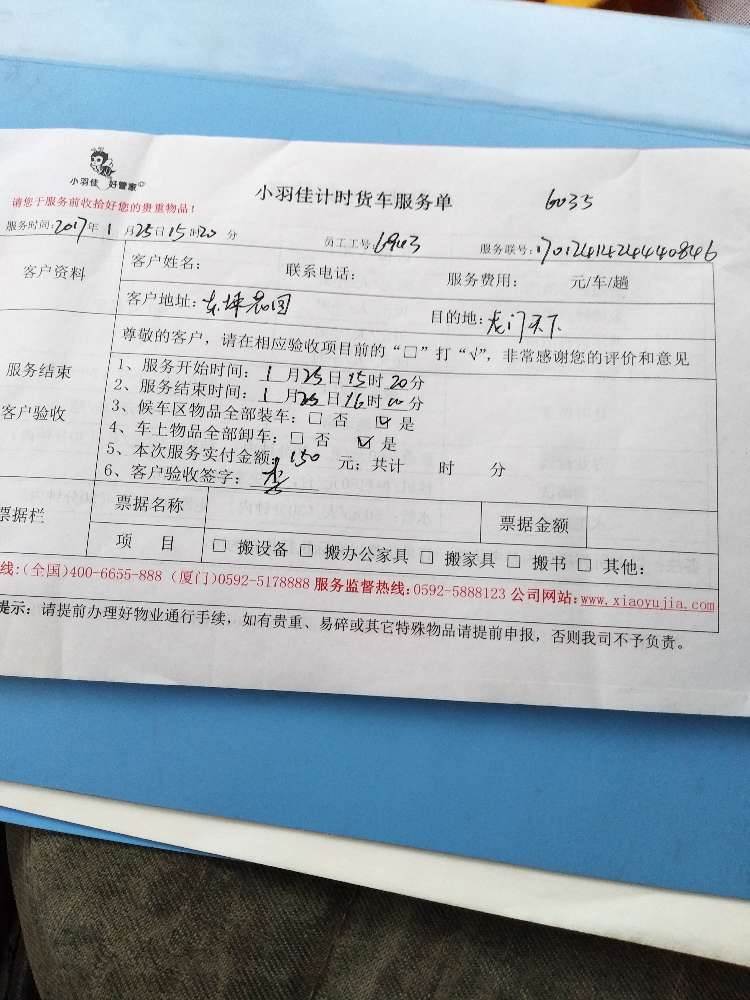 小羽佳 好管家
小羽佳计时货车服务单 6035
请您于服务前收拾好您的贵重物品!
服务时间:2017年1月25日15时20分 员工工号:6943 服务联号:1701241424440846
客户资料
客户姓名: 联系电话: 服务费用: 元/车/趟
客户地址:东坪花园 目的地:龙门天下
尊敬的客户,请在相应验收项目前的“□”打“√”,非常感谢您的评价和意见
服务结束
客户验收
1、服务开始时间:1月25日15时20分
2、服务结束时间:1月25日16时00分
3、候车区物品全部装车:□ 否 ☑ 是
4、车上物品全部卸车:□ 否 ☑ 是
5、本次服务实付金额:150 元;共计 时 分
6、客户验收签字:
票据栏
票据名称 票据金额
项 目 □ 搬设备 □ 搬办公家具 □ 搬家具 □ 搬书 □ 其他:
线:(全国)400-6655-888 (厦门)0592-5178888 服务监督热线:0592-5888123 公司网站:www.xiaoyujia.com
提示:请提前办理好物业通行手续,如有贵重、易碎或其它特殊物品请提前申报,否则我司不予负责。